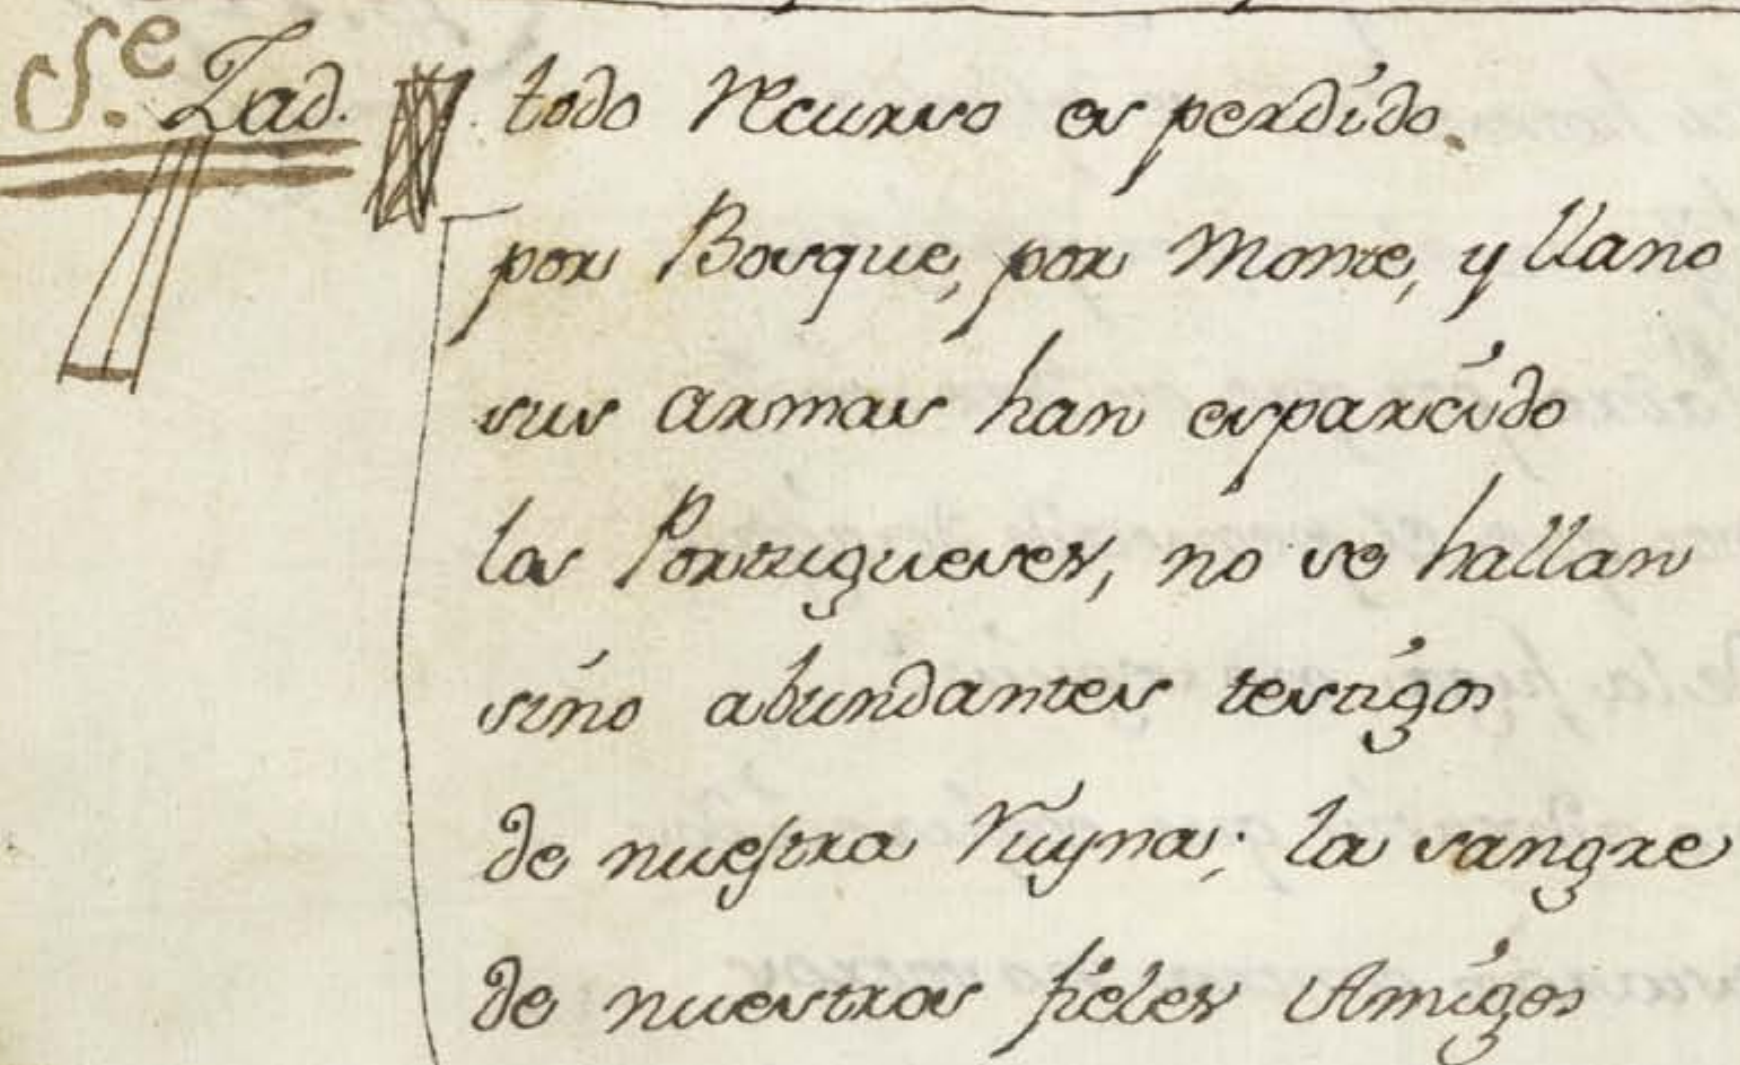 S.e Zad. todo recurso es perdido.
por Bosque, por Monte, y llano
sus armas han esparcido
los Portugueses, no se hallan
sino abundantes testigos
de nuestra ruyna; la sangre
de nuestros fieles Amigos